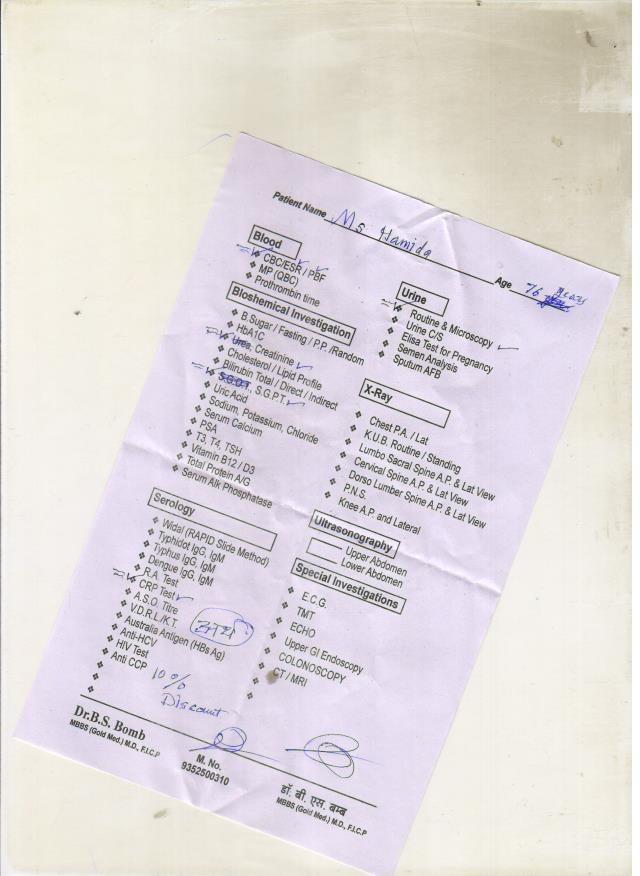 Patient Name Ms Hamida
Age 76 Years
Blood
CBC/ESR / PBF
MP (QBC)
Prothrombin time
Bioshemical Investigation
B.Sugar / Fasting / P.P. /Random
HbA1C
Urea, Creatinine
Cholesterol / Lipid Profile
Bilirubin Total / Direct / Indirect
S.G.O.T., S.G.P.T.
Uric Acid
Sodium, Potassium, Chloride
Serum Calcium
PSA
T3, T4, TSH
Vitamin B12 / D3
Total Protein A/G
Serum Alk Phosphatase
Serology
Widal (RAPID Slide Method)
Typhidot IgG, IgM
Typhus IgG, IgM
Dengue IgG, IgM
R.A. Test
CRP Test
A.S.O. Titre
V.D.R.L/K.T.
Australia Antigen (HBs Ag)
Anti-HCV
HIV Test
Anti CCP
10%
Discount
Urine
Routine & Microscopy
Urine C/S
Elisa Test for Pregnancy
Semen Analysis
Sputum AFB
X-Ray
Chest P.A. / Lat
K.U.B. Routine / Standing
Lumbo Sacral Spine A.P. & Lat View
Cervical Spine A.P. & Lat View
Dorso Lumber Spine A.P. & Lat View
P.N.S.
Knee A.P. and Lateral
Ultrasonography
Upper Abdomen
Lower Abdomen
Special Investigations
E.C.G.
TMT
ECHO
Upper GI Endoscopy
COLONOSCOPY
CT / MRI
Dr.B.S. Bomb
MBBS (Gold Med.) M.D., F.I.C.P
M. No.
9352500310
डॉ. बी. एस. बम्ब
MBBS (Gold Med.) M.D., F.I.C.P